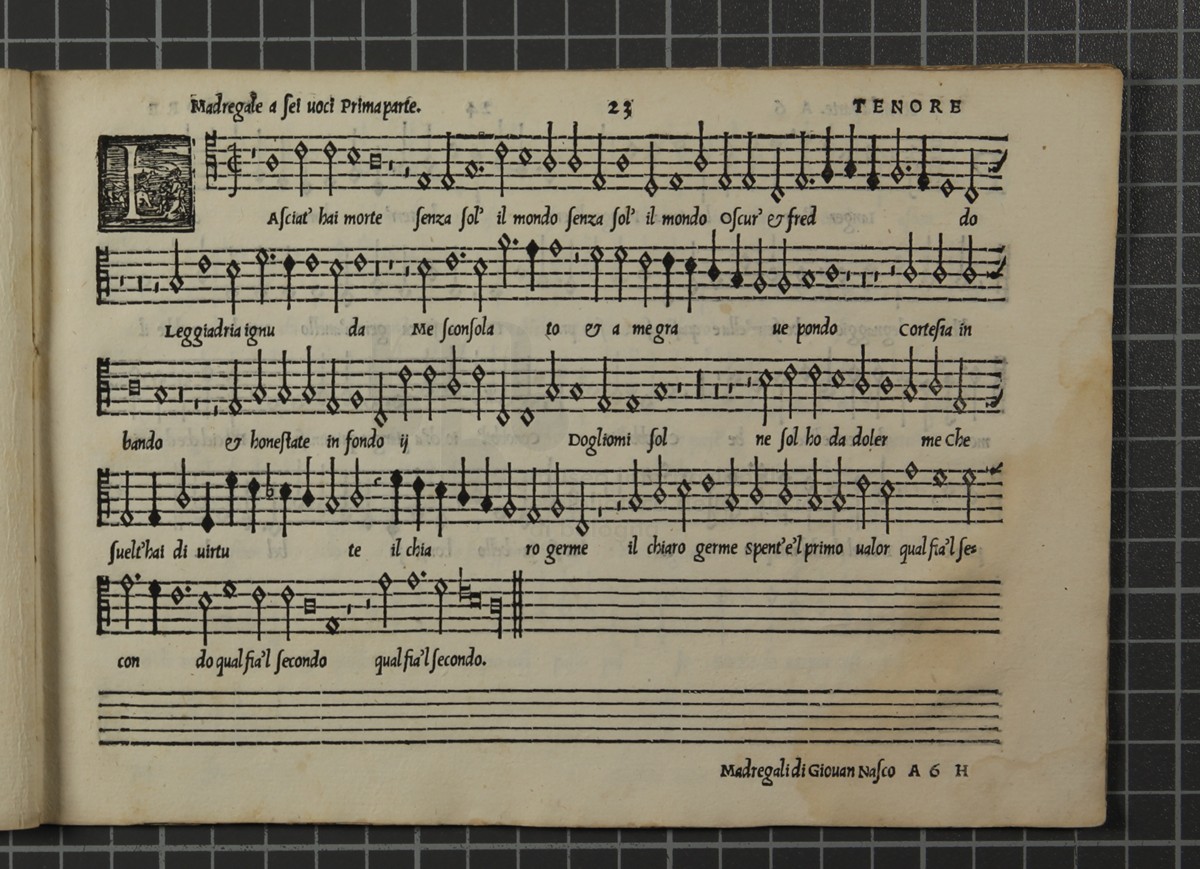 Madregale a ſei uoci Prima parte. 23 TENORE
L Aſciat' hai morte ſenza ſol' il mondo ſenza ſol' il mondo Oſcur' & fred do
Leggiadria ignu da Me ſconſola to & a me gra ue pondo Corteſia in
bando & honeſtate in fondo ij Dogliomi ſol ne ſol ho da doler me Che
ſuelt'hai di uirtu te il chia ro germe il chiaro germe spent'e'l primo ualor qual fia'l ſe=
con do qual fia'l ſecondo qual fia'l ſecondo.
Madregali di Giouan Naſco A 6 H